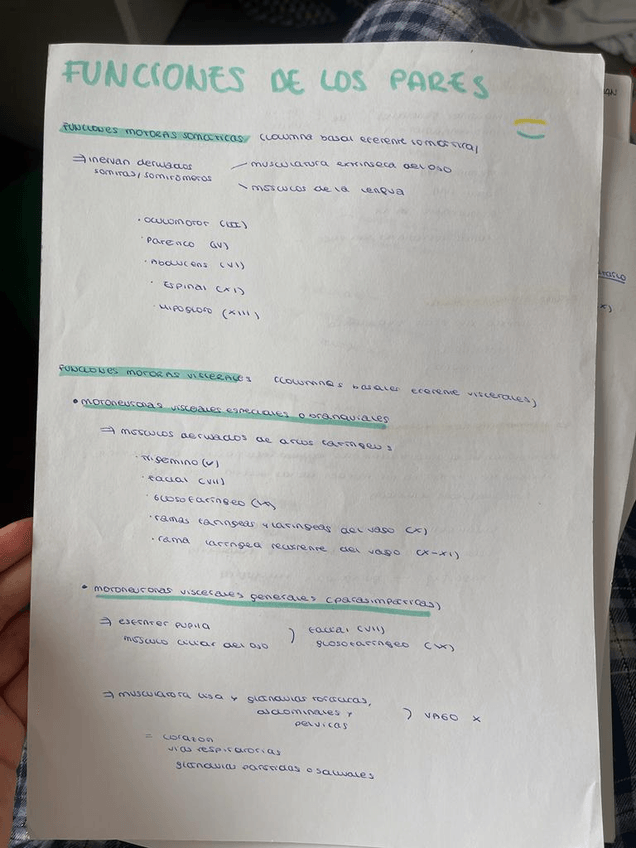 FUNCIONES DE LOS PARES
FUNCIONES MOTORAS SOMÁTICAS (columna basal eferente somática)
⇒ inervan derivados somitas/somitómeros
musculatura extrínseca del ojo
músculos de la lengua
· oculomotor (III)
· Patético (IV)
· Abducens (VI)
· Espinal (XI)
· Hipogloso (XIII)
FUNCIONES MOTORAS VISCERALES (columnas basales eferente viscerales)
• motoneuronas viscerales especiales o branquiales
⇒ músculos derivados de arcos faríngeos
· Trigémino (V)
· Facial (VII)
· Glosofaríngeo (IX)
· ramas faríngeas y laríngeas del vago (X)
· rama laríngea recurrente del vago (X-XI)
• motoneuronas viscerales generales (parasimpáticas)
⇒ esfínter pupila
músculo ciliar del ojo
) facial (VII)
glosofaríngeo (IX)
⇒ musculatura lisa y glándulas torácicas,
abdominales y
pélvicas
) VAGO X
= corazón
vías respiratorias
glándulas parótidas o salivales